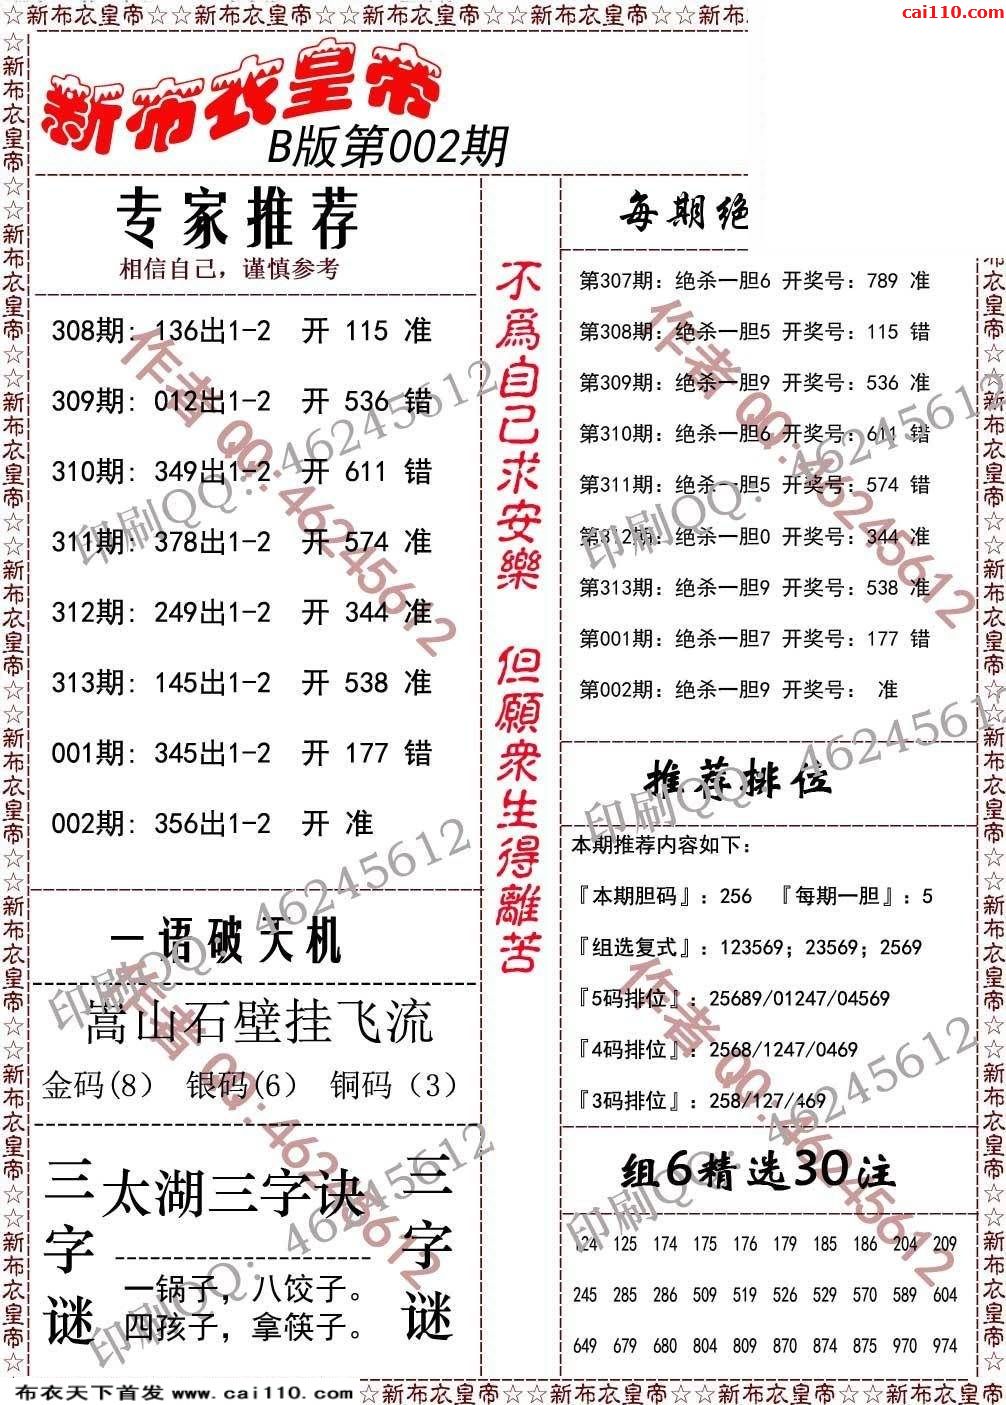 ☆新布衣皇帝☆☆新布衣皇帝☆☆新布衣皇帝☆☆新布衣皇帝☆☆新布
cai110.com
新布衣皇帝
B版第002期
专家推荐
相信自己，谨慎参考
308期: 136出1-2 开 115 准
309期: 012出1-2 开 536 错
310期: 349出1-2 开 611 错
311期: 378出1-2 开 574 准
312期: 249出1-2 开 344 准
313期: 145出1-2 开 538 准
001期: 345出1-2 开 177 错
002期: 356出1-2 开 准
一语破天机
嵩山石壁挂飞流
金码(8） 银码(6） 铜码（3）
三字谜
太湖三字诀
一锅子，八饺子。
四孩子，拿筷子。
三字谜
不爲自己求安樂 但願衆生得離苦
每期绝
第307期：绝杀一胆6 开奖号：789 准
第308期：绝杀一胆5 开奖号：115 错
第309期：绝杀一胆9 开奖号：536 准
第310期：绝杀一胆6 开奖号：611 错
第311期：绝杀一胆5 开奖号：574 错
第312期：绝杀一胆0 开奖号：344 准
第313期：绝杀一胆9 开奖号：538 准
第001期：绝杀一胆7 开奖号：177 错
第002期：绝杀一胆9 开奖号： 准
推荐排位
本期推荐内容如下：
『本期胆码』：256 『每期一胆』：5
『组选复式』：123569；23569；2569
『5码排位』：25689/01247/04569
『4码排位』：2568/1247/0469
『3码排位』：258/127/469
组6精选30注
124 125 174 175 176 179 185 186 204 209
245 285 286 509 519 526 529 570 589 604
649 679 680 804 809 870 874 875 970 974
作者 QQ：46245612
印刷QQ：46245612
作者 QQ：46245612
印刷QQ：46245612
印刷QQ：46245612
印刷QQ：46245612
作者 QQ：46245612
作者 QQ：46245612
印刷QQ：46245612
印刷QQ：46245612
☆新布衣皇帝☆☆新布衣皇帝☆☆新布衣皇帝☆☆新布衣皇帝☆☆新布衣皇帝☆☆新布衣皇帝☆☆新布衣皇帝☆☆新布衣皇帝☆
布衣天下首发 www.cai110.com
☆新布衣皇帝☆☆新布衣皇帝☆☆新布衣皇帝☆☆新布衣皇帝☆